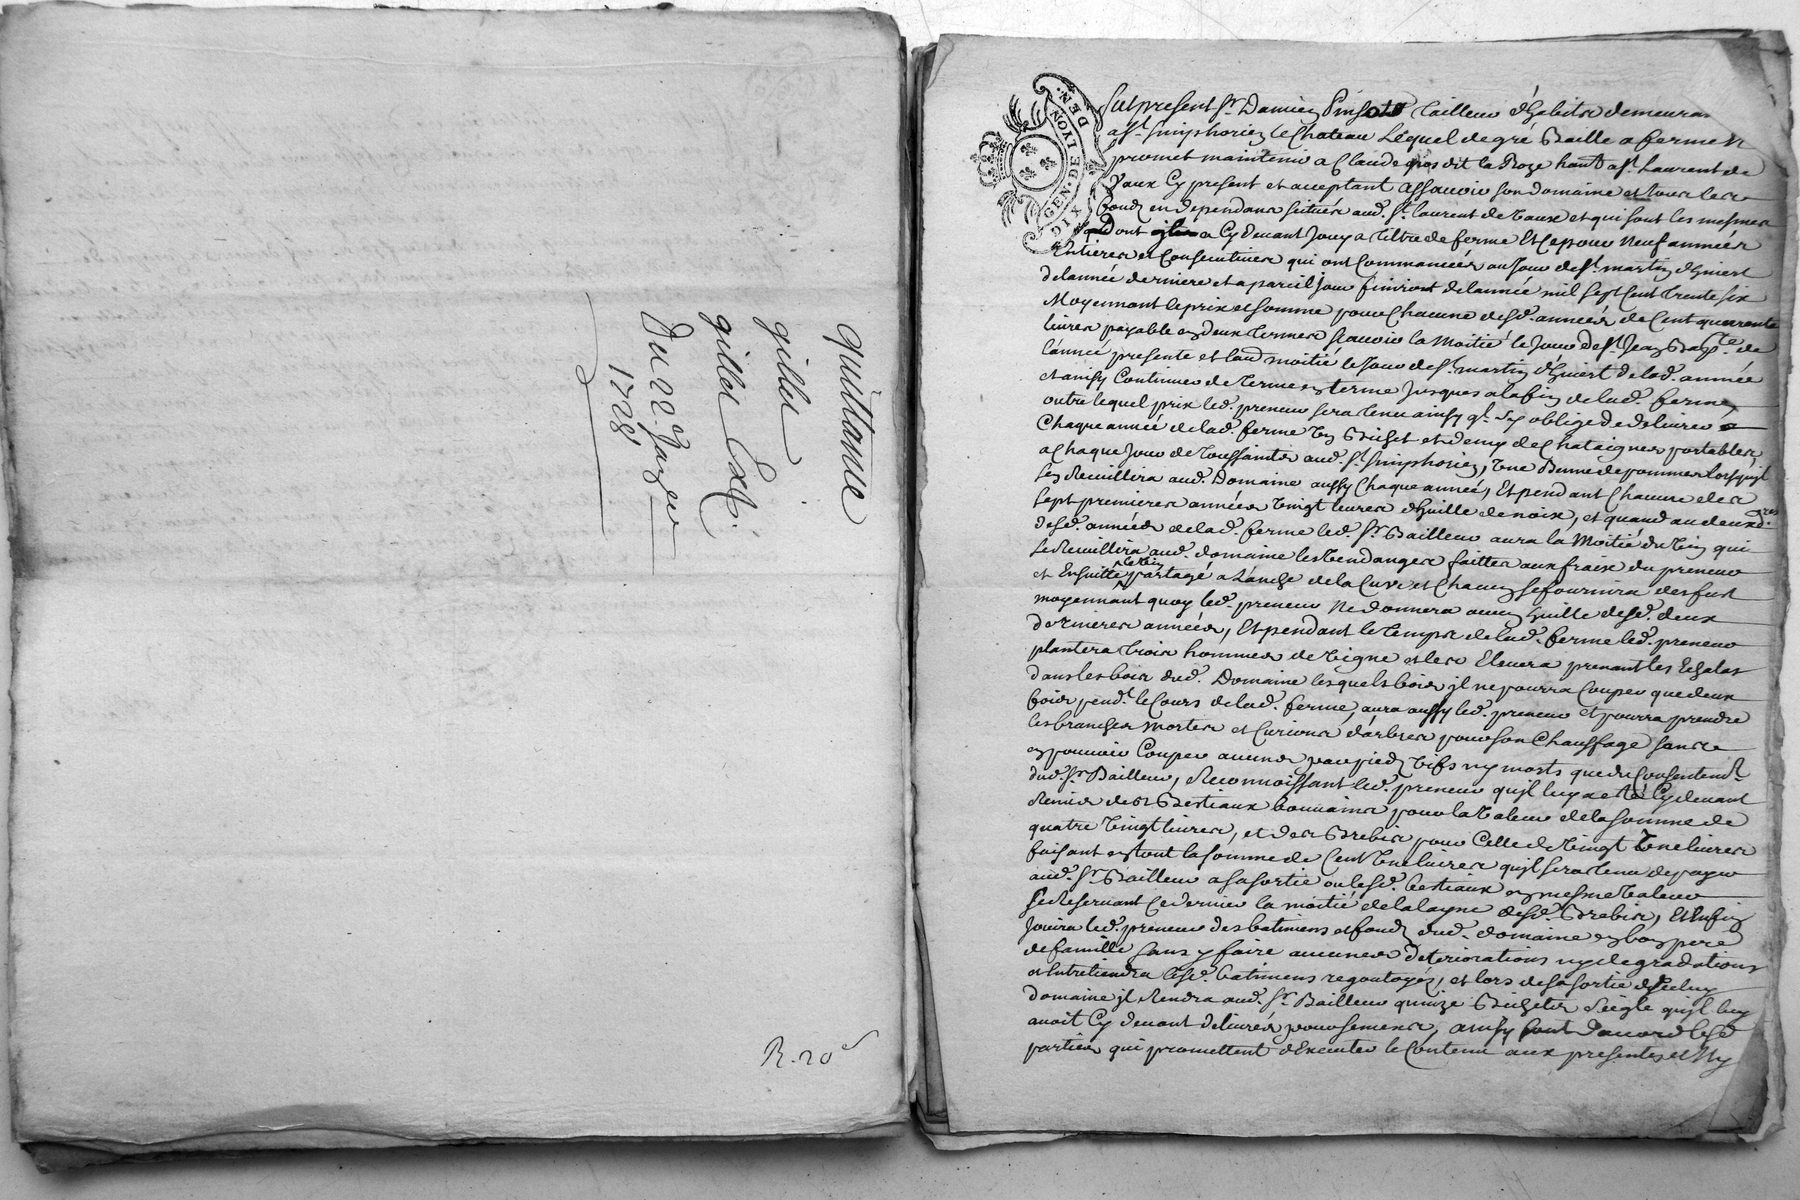 Quittance
gilles
gilles Ext.
Du 22e Janvier
1728
R. 20 s
DIX DEN. GEN. DE LYON
fut present Sr. Damien Pinset tailleur d'habits demeurant
a St. Simphorien le Chateau Lequel de gré Baille a ferme et
promet maintenir a Claude gros dit la Roze habt. a St. Laurent de
Vaux Cy present et acceptant assavoir son domaine et tous les
fonds en dependans scitués aud. St. laurent de Vaux et qui sont les mesmes
dont il a Cy devant Jouy a tiltre de ferme Et Ce pour Neuf années
Entieres et Consecutives qui ont Commancées au Jour de St. martin d'hivert
de lannée derniere et a pareil jour finiront de lannée mil sept Cent trente six
Moyennant le prix et somme pour Chacune desd. années de Cent quarante
livres payable en deux termes scavoir la Moitié le Jour de St. Jean Bapte. de
lannée presente et laud. moitié le Jour de St. martin d'hivert de lad. année
et ainsy Continuer de terme en terme Jusques a la fin de lad. ferme,
outre lequel prix led. preneur sera tenu ainsy ql. sy oblige de delivrer
Chaque année de lad. ferme un Bichet et demy de Chataignes portables
a Chaque Jour de Toussaints aud. St. Simphorien, Une Benne de pommes lorsquil
sen Recuillira aud. Domaine aussy Chaque année, Et pendant Chacune des
sept premieres années vingt livres d'huille de noix, et quand au deux dres.
desd. années de lad. ferme led. Sr. Bailleur aura la Moitié du vin qui
se Recuillira aud. domaine les vendanges faittes aux fraix du preneur
et Ensuitte le vin partagé a L'anche de la Cuve et Chacun se fournira des fust
moyennant quoy led. preneur Ne donnera aucun huille desd. deux
dernieres années, Et pendant le temps de lad. ferme led. preneur
plantera trois hommes de vigne et les Elevera prenant les Echalas
dans les bois dud. Domaine lesquels bois il ne pourra Couper que deux
fois pend. le Cours de lad. ferme, aura aussy led. preneur et pourra prendre
les branches mortes et Curions d'arbres pour son Chauffage sans
en pouvoir Couper aucuns par pieds vifs ny morts que du Consentemt.
dud. Sr. Bailleur, Reconnoissant led. preneur quil luy a eté Cy devant
Remis des Bestiaux bouvains pour la valeur de la somme de
quatre vingt livres, et des Brebis pour Celle de vingt Une livres
faisant en tout la somme de Cent Une livres quil sera tenu de payer
aud. Sr. Bailleur a sa sortie ou lesd. bestiaux en mesme valeur
se Reservant Ce dernier la moitié de la layne desd. Brebis, Et Enfin
Jouira led. preneur des batimens et fonds dud. domaine en bon pere
de famille sans y faire aucunes deteriorations ny degradations
et Entretiendra lesd. batimens regoutoyés, et lors de sa sortie diceluy
domaine il Rendra aud. Sr. Bailleur quinze Bichets seigle quil luy
avoit Cy devant delivrés pour semence, ainsy sont d'accord lesd.
parties qui promettent d'Executer le Contenu aux presentes et Ny